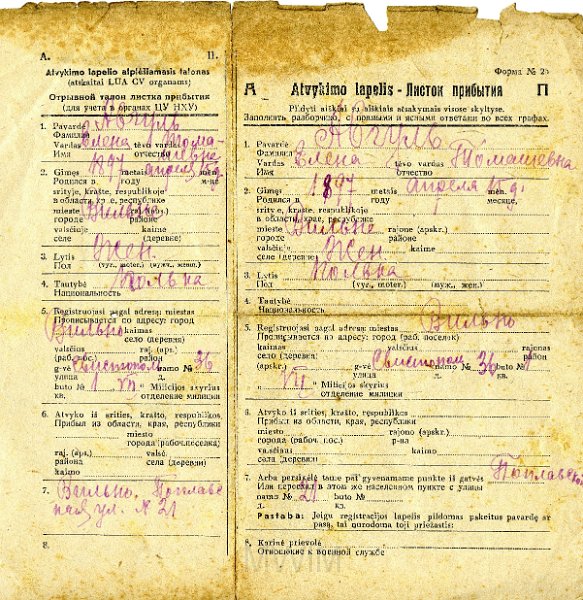 A. II.
Atvykimo lapelio atplėšiamasis talonas
(atskaitai LUA CV organams)
Отрывной талон листка прибытия
(для учета в органах ЦУ НХУ)
1. Pavardė
Фамилия
Vardas Елена tėvo vardas
Имя отчество
2. Gimęs 1897 metais апреля mėn.
Родился в году м-це
srityje, krašte, respublikoje
в области, кр.е, республике
mieste Вильно rajone (apskr.)
городе районе
valsčiuje kaime
селе (деревне)
3. Lytis Жен
Пол (vyr., moter.) (муж., жен.)
4. Tautybė Полька
Национальность
5. Registruojasi pagal adresą: miestas
Прописывается по адресу: город
Вильно kaimas
село (деревня)
valsčius raj. (aps.)
(раб. пос.) район
g-vė namo № 36
улица д.
buto № 1 VII Milicijos skyrius
кв. отделение милиции
6. Atvyko iš srities, krašto, respublikos
Прибыл из области, края, республики
miesto
города (рабоч.поселка)
raj. (apskr.) valsčiaus
района kaimo
села (деревни)
7. Вильно, Поплавс
кая ул. N 21
8.
Форма № 25
А Atvykimo lapelis - Листок прибытия П
Pildyti aiškiai su aiškiais atsakymais visose skyltyse.
Заполнять разборчиво, с полными и ясными ответами во всех графах.
1. Pavardė
Фамилия
Vardas Елена tėvo vardas Томашевна
Имя отчество
2. Gimęs 1897 metais апреля 15 д. mėn.
Родился в году месяце,
srityje, krašte, respublikoje
в области, крае, республике
mieste Вильне rajone (apskr.)
городе районе
valsčiuje kaime
селе (деревне) Жен
3. Lytis Полька
Пол (vyr., moter.) (муж., жен.)
4. Tautybė
Национальность
5. Registruojasi pagal adresą miestas Вильно
Прописывается по адресу: город
kaimas valsčius rajonas
село (деревня) (раб. поселок) район
(apskr.) g-vė namo № 36 buto № 1
улица д. кв.
VII Milicijos skyrius
отделение милиции
6. Atvyko iš srities, krašto, respublikos
Прибыл из области, края, республики
miesto rajono (apskr.)
города (рабоч. пос.) р-на
valsčiaus kaimo
села (деревни)
7. Arba persikėlė tame pat gyvenamame punkte iš gatvės Поплавско
Или переехал в этом же населенном пункте с улицы
namo № 21 buto №
д. кв.
Pastaba: Jeigu registracijos lapelis pildomas pakeitus pavardę ar
pasą, tai nurodoma toji priežastis:
8. Karinė prievolė
Отношение к военной службе